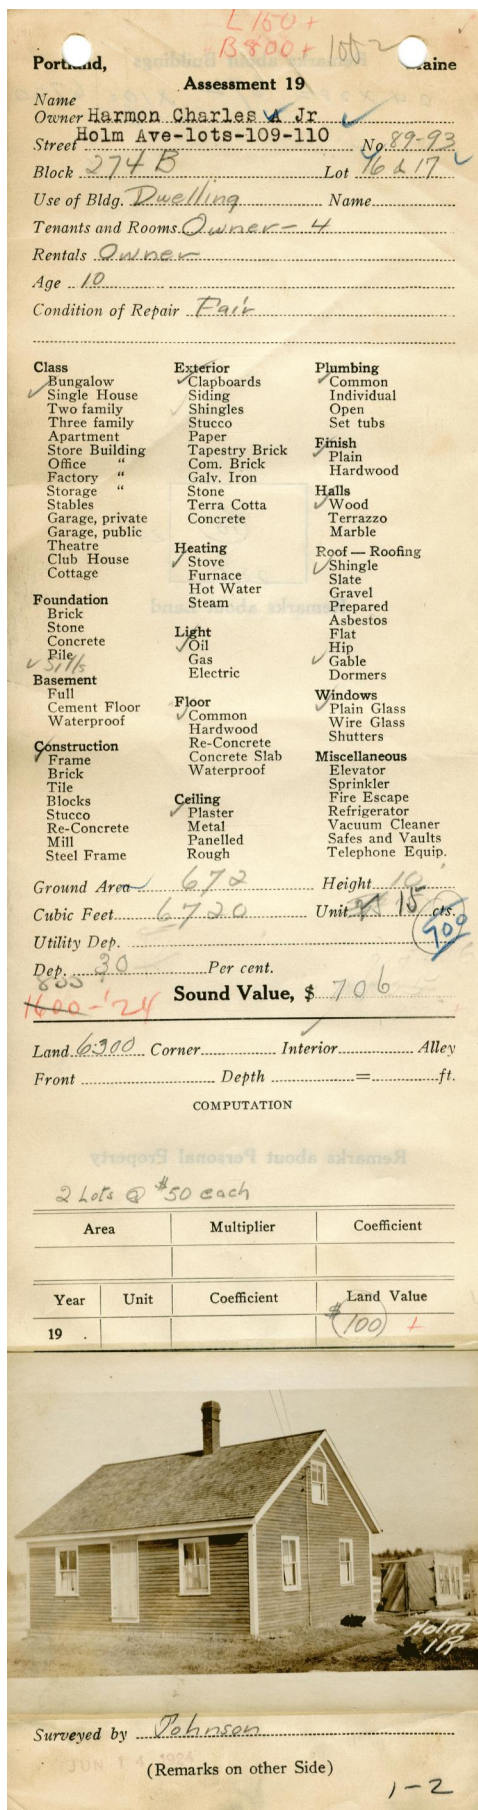 L 150 +
B 800 + 100-2
Portland, Maine
Assessment 19
Name
Owner Harmon Charles A Jr
Street Holm Ave-lots-109-110 No. 89-93
Block 274 B Lot 16 & 17
Use of Bldg. Dwelling Name
Tenants and Rooms Owner - 4
Rentals Owner
Age 10
Condition of Repair Fair
Class
Bungalow
Single House
Two family
Three family
Apartment
Store Building
Office "
Factory "
Storage "
Stables
Garage, private
Garage, public
Theatre
Club House
Cottage
Foundation
Brick
Stone
Concrete
Pile
Sills
Basement
Full
Cement Floor
Waterproof
Construction
Frame
Brick
Tile
Blocks
Stucco
Re-Concrete
Mill
Steel Frame
Exterior
Clapboards
Siding
Shingles
Stucco
Paper
Tapestry Brick
Com. Brick
Galv. Iron
Stone
Terra Cotta
Concrete
Heating
Stove
Furnace
Hot Water
Steam
Light
Oil
Gas
Electric
Floor
Common
Hardwood
Re-Concrete
Concrete Slab
Waterproof
Ceiling
Plaster
Metal
Panelled
Rough
Plumbing
Common
Individual
Open
Set tubs
Finish
Plain
Hardwood
Halls
Wood
Terrazzo
Marble
Roof — Roofing
Shingle
Slate
Gravel
Prepared
Asbestos
Flat
Hip
Gable
Dormers
Windows
Plain Glass
Wire Glass
Shutters
Miscellaneous
Elevator
Sprinkler
Fire Escape
Refrigerator
Vacuum Cleaner
Safes and Vaults
Telephone Equip.
Ground Area 672 Height 10'
Cubic Feet 6720 Unit 15 cts.
Utility Dep. 700
Dep. 30 Per cent.
800
1600-'24 Sound Value, $ 706
Land 6300 Corner Interior Alley
Front Depth = ft.
COMPUTATION
2 Lots @ $50 each
Area Multiplier Coefficient
Year Unit Coefficient Land Value
19 . $100 +
Holm
1R
Surveyed by Johnson
JUN 14 1924
(Remarks on other Side)
1-2